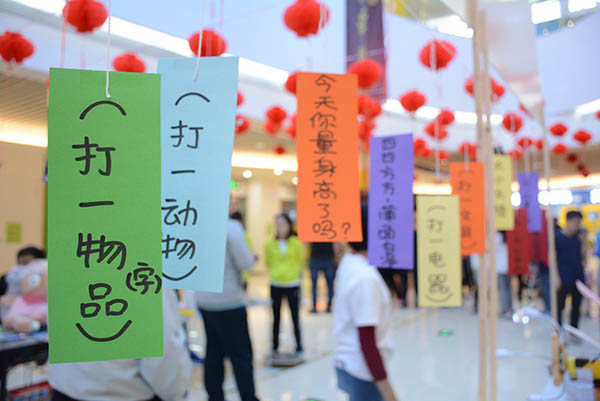 （打一物品）
（字）
（打一动物）
今天你量身高了吗？
四四方方
（打一
（打一电器）